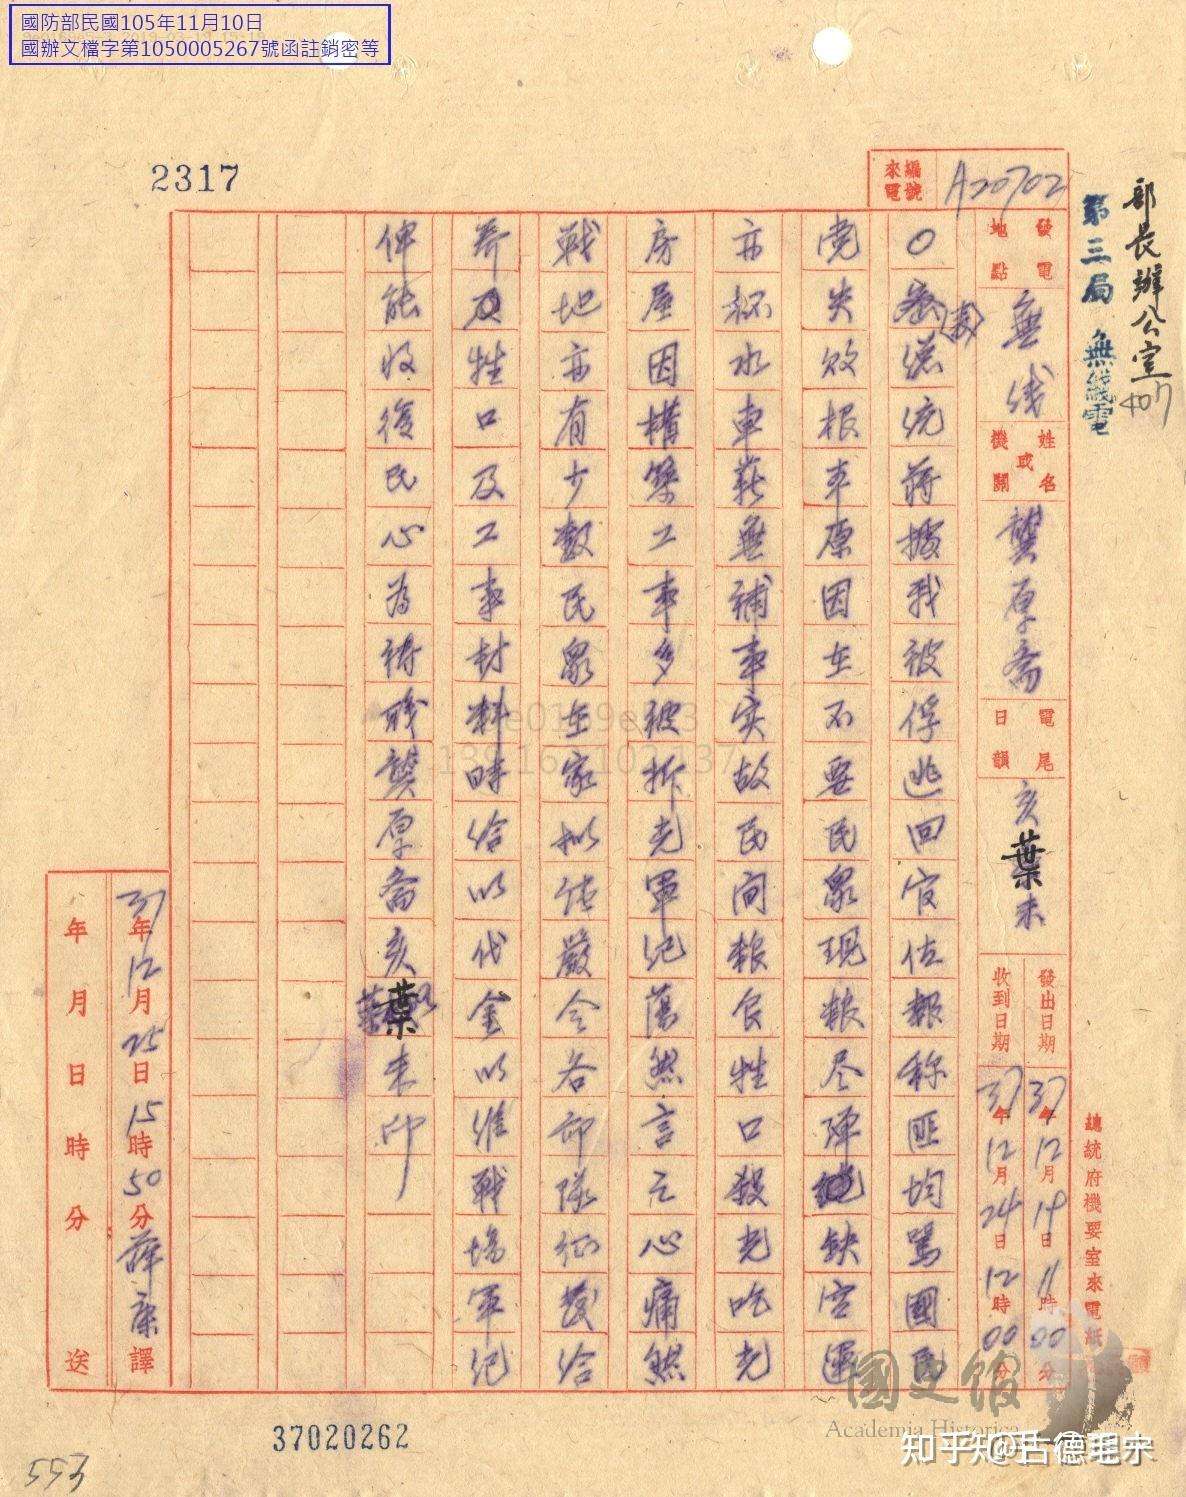 國防部民國105年11月10日
國辦文檔字第1050005267號函註銷密等
2317
部長辦公室
407
第三局 無綫電
來電編號
A20702
發電地點
無线
姓名或機關
龔厚斋
電尾日韻
亥葉未
發出日期
37年12月19日11時00分
收到日期
37年12月24日12時00分
總統府機要室來電紙
○總統蔣據我被俘逃回官佐報称匪均罵國民
党失敗根本原因在不要民眾現粮尽弹缺空運
亦杯水車薪無補事实故民间粮食牲口殺光吃光
房屋因構築工事多被拆光軍纪蕩然言之心痛然
戰地亦有少數民眾在家拟請嚴令各部隊征發给
养及牲口及工事材料時给以代金以維戰場军纪
俾能收後民心為禱職龔厚斋亥葉未印
37年12月25日15時50分薛康譯
年月日時分送
37020262
553
國史館
Academia Historica
知乎 @古德毛宁